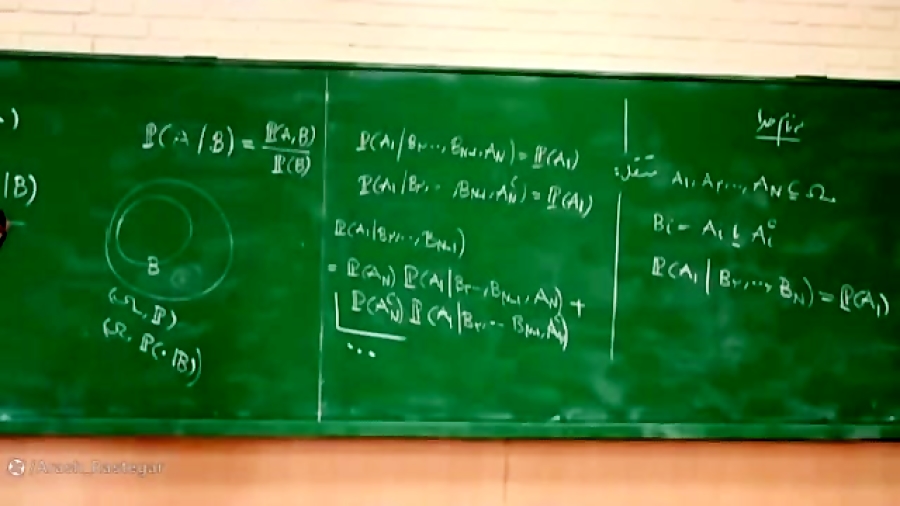 .)
|B)
ℙ(A|B) = ℙ(A,B)/ℙ(B)
B
(Ω, ℙ)
(Ω, ℙ(·|B))
ℙ(A₁|B₂,...,B_{N-1},A_N) = ℙ(A₁)
ℙ(A₁|B₂,...,B_{N-1},A_N^c) = ℙ(A₁)
ℙ(A₁|B₂,...,B_{N-1})
= ℙ(A_N) ℙ(A₁|B₂,...,B_{N-1},A_N) +
ℙ(A_N^c) ℙ(A₁|B₂,...,B_{N-1},A_N^c)
...
مستقل: A₁,A₂,...,A_N ⊆ Ω
B_i = A_i یا A_i^c
ℙ(A₁|B₂,...,B_N) = ℙ(A₁)
/Arash_Rastegar